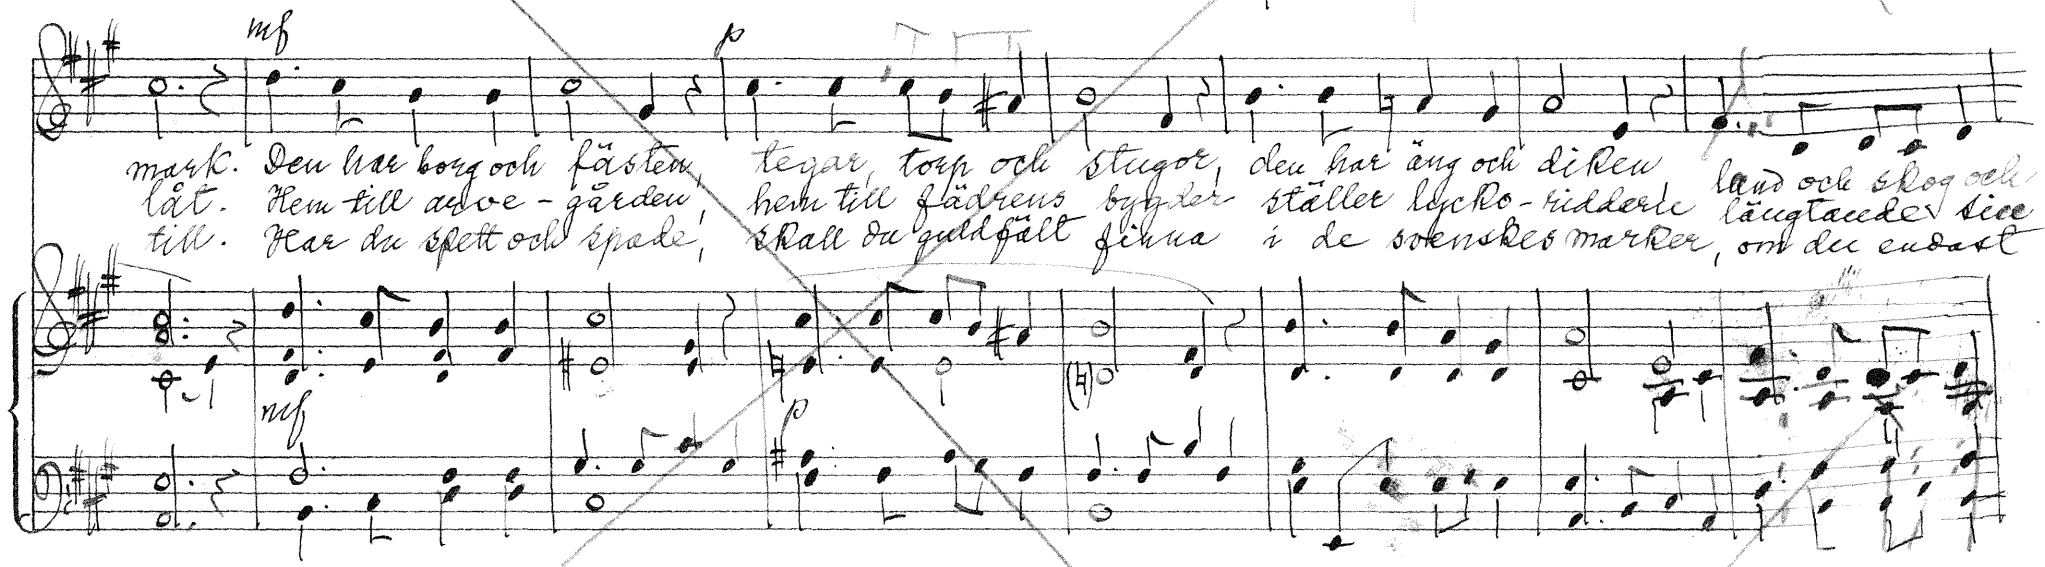 mf p
mark. Den har borg och fästen, tegar, torp och stugor, den har äng och diken, land och skog och
låt. Hem till arve-gården, hem till fädrens bygder ställer lycko-riddarn längtande sin
till. Har du spett och spade, skall du guldfält finna i de svenskes marker, om du endast
mf p